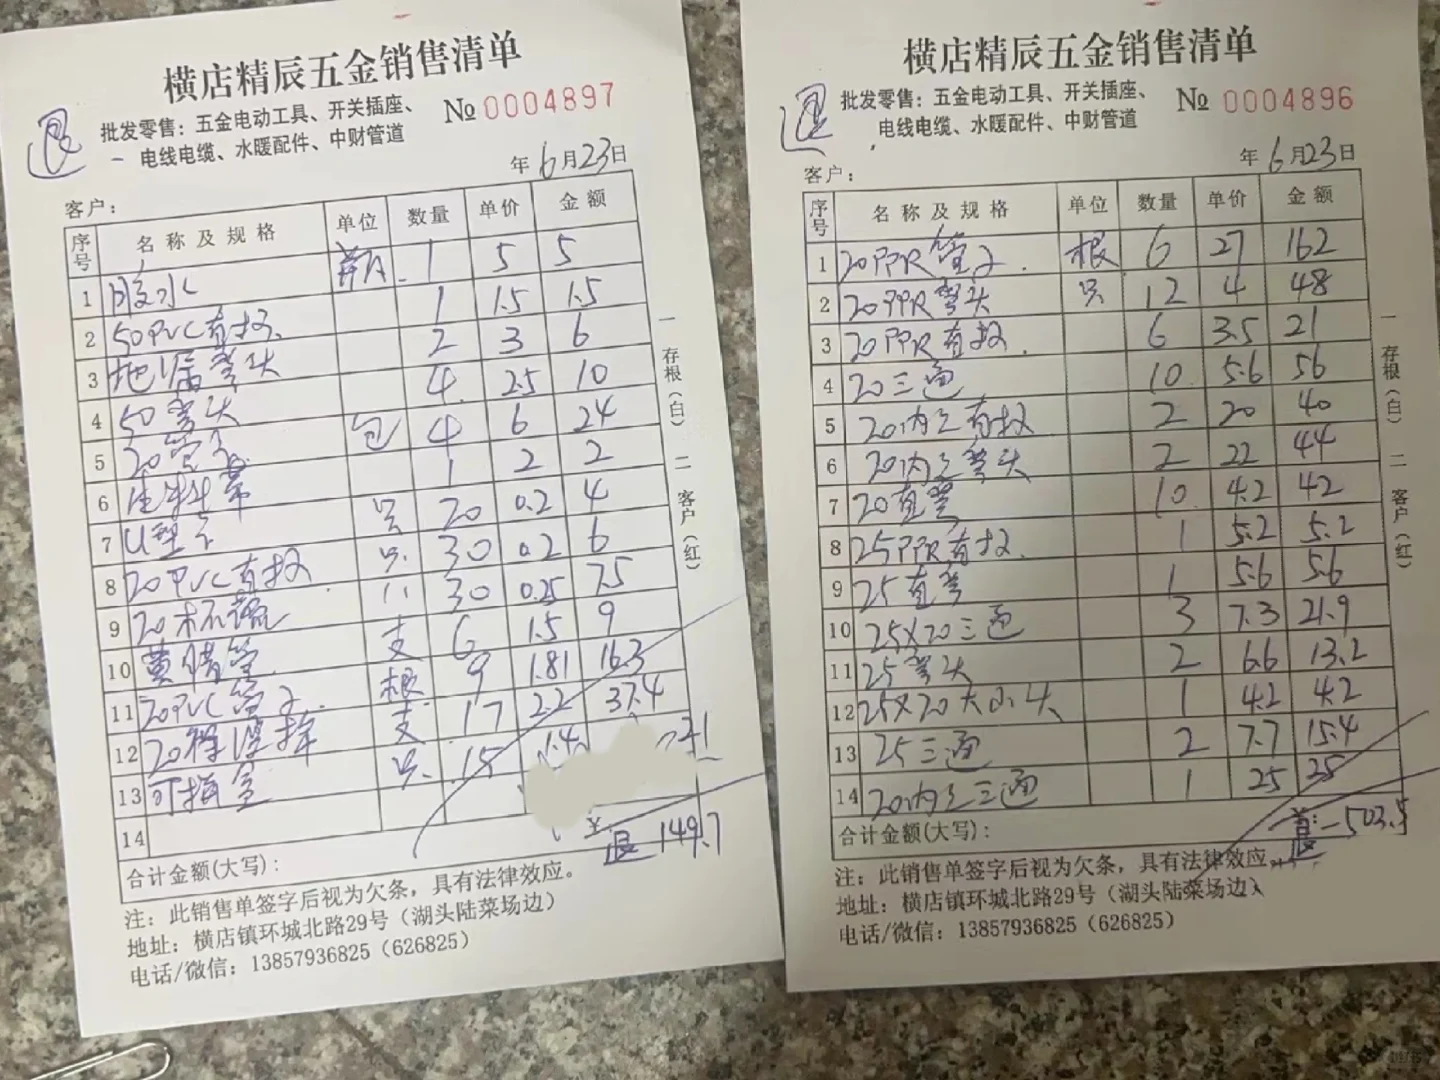 横店精辰五金销售清单
退
批发零售：五金电动工具、开关插座、
电线电缆、水暖配件、中财管道
№ 0004897
年 6月23日
客户：
序号 名称及规格 单位 数量 单价 金额
1 胶水 瓶 1 5 5
2 50PVC直接 1 1.5 1.5
3 地漏弯头 2 3 6
4 50弯头 4 2.5 10
5 20管卡 包 4 6 24
6 生料带 1 2 2
7 U型卡 只 20 0.2 4
8 20PVC直接 只 30 0.2 6
9 20杯疏 11 30 0.25 7.5
10 黄腊管 支 6 1.5 9
11 20PVC管子 根 9 1.81 16.3
12 20 支 17 2.2 37.4
13 可接盒 只 15 1.4 21
14
合计金额(大写)：
¥
退 149.7
一存根（白） 二客户（红）
注：此销售单签字后视为欠条，具有法律效应。
地址：横店镇环城北路29号（湖头陆菜场边）
电话/微信：13857936825（626825）
横店精辰五金销售清单
退
批发零售：五金电动工具、开关插座、
电线电缆、水暖配件、中财管道
№ 0004896
年 6月23日
客户：
序号 名称及规格 单位 数量 单价 金额
1 20PPR管子 根 6 27 162
2 20PPR弯头 只 12 4 48
3 20PPR直接 6 3.5 21
4 20三通 10 5.6 56
5 20内丝直接 2 20 40
6 20内丝弯头 2 22 44
7 20直弯 10 4.2 42
8 25PPR直接 1 5.2 5.2
9 25直弯 1 5.6 5.6
10 25×20三通 3 7.3 21.9
11 25弯头 2 6.6 13.2
12 25×20大小头 1 4.2 4.2
13 25三通 2 7.7 15.4
14 20内丝三通 1 25 25
合计金额(大写)：
退 -503.5
一存根（白） 二客户（红）
注：此销售单签字后视为欠条，具有法律效应。
地址：横店镇环城北路29号（湖头陆菜场边）
电话/微信：13857936825（626825）